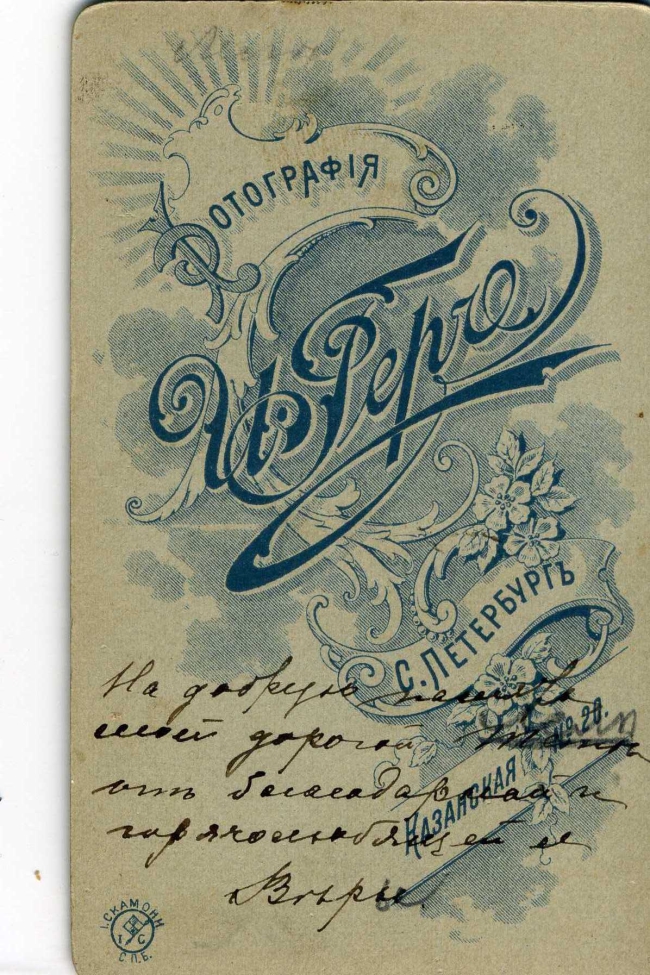 Фотографія
И. Герче
С. ПЕТЕРБУРГЪ
КАЗАНСКАЯ №20.
На добрую память
моей дорогой Тани
отъ благодарной и
горячолюбящей ее
Вѣры.
І. СКАМОНИ
I G
С.П.Б.